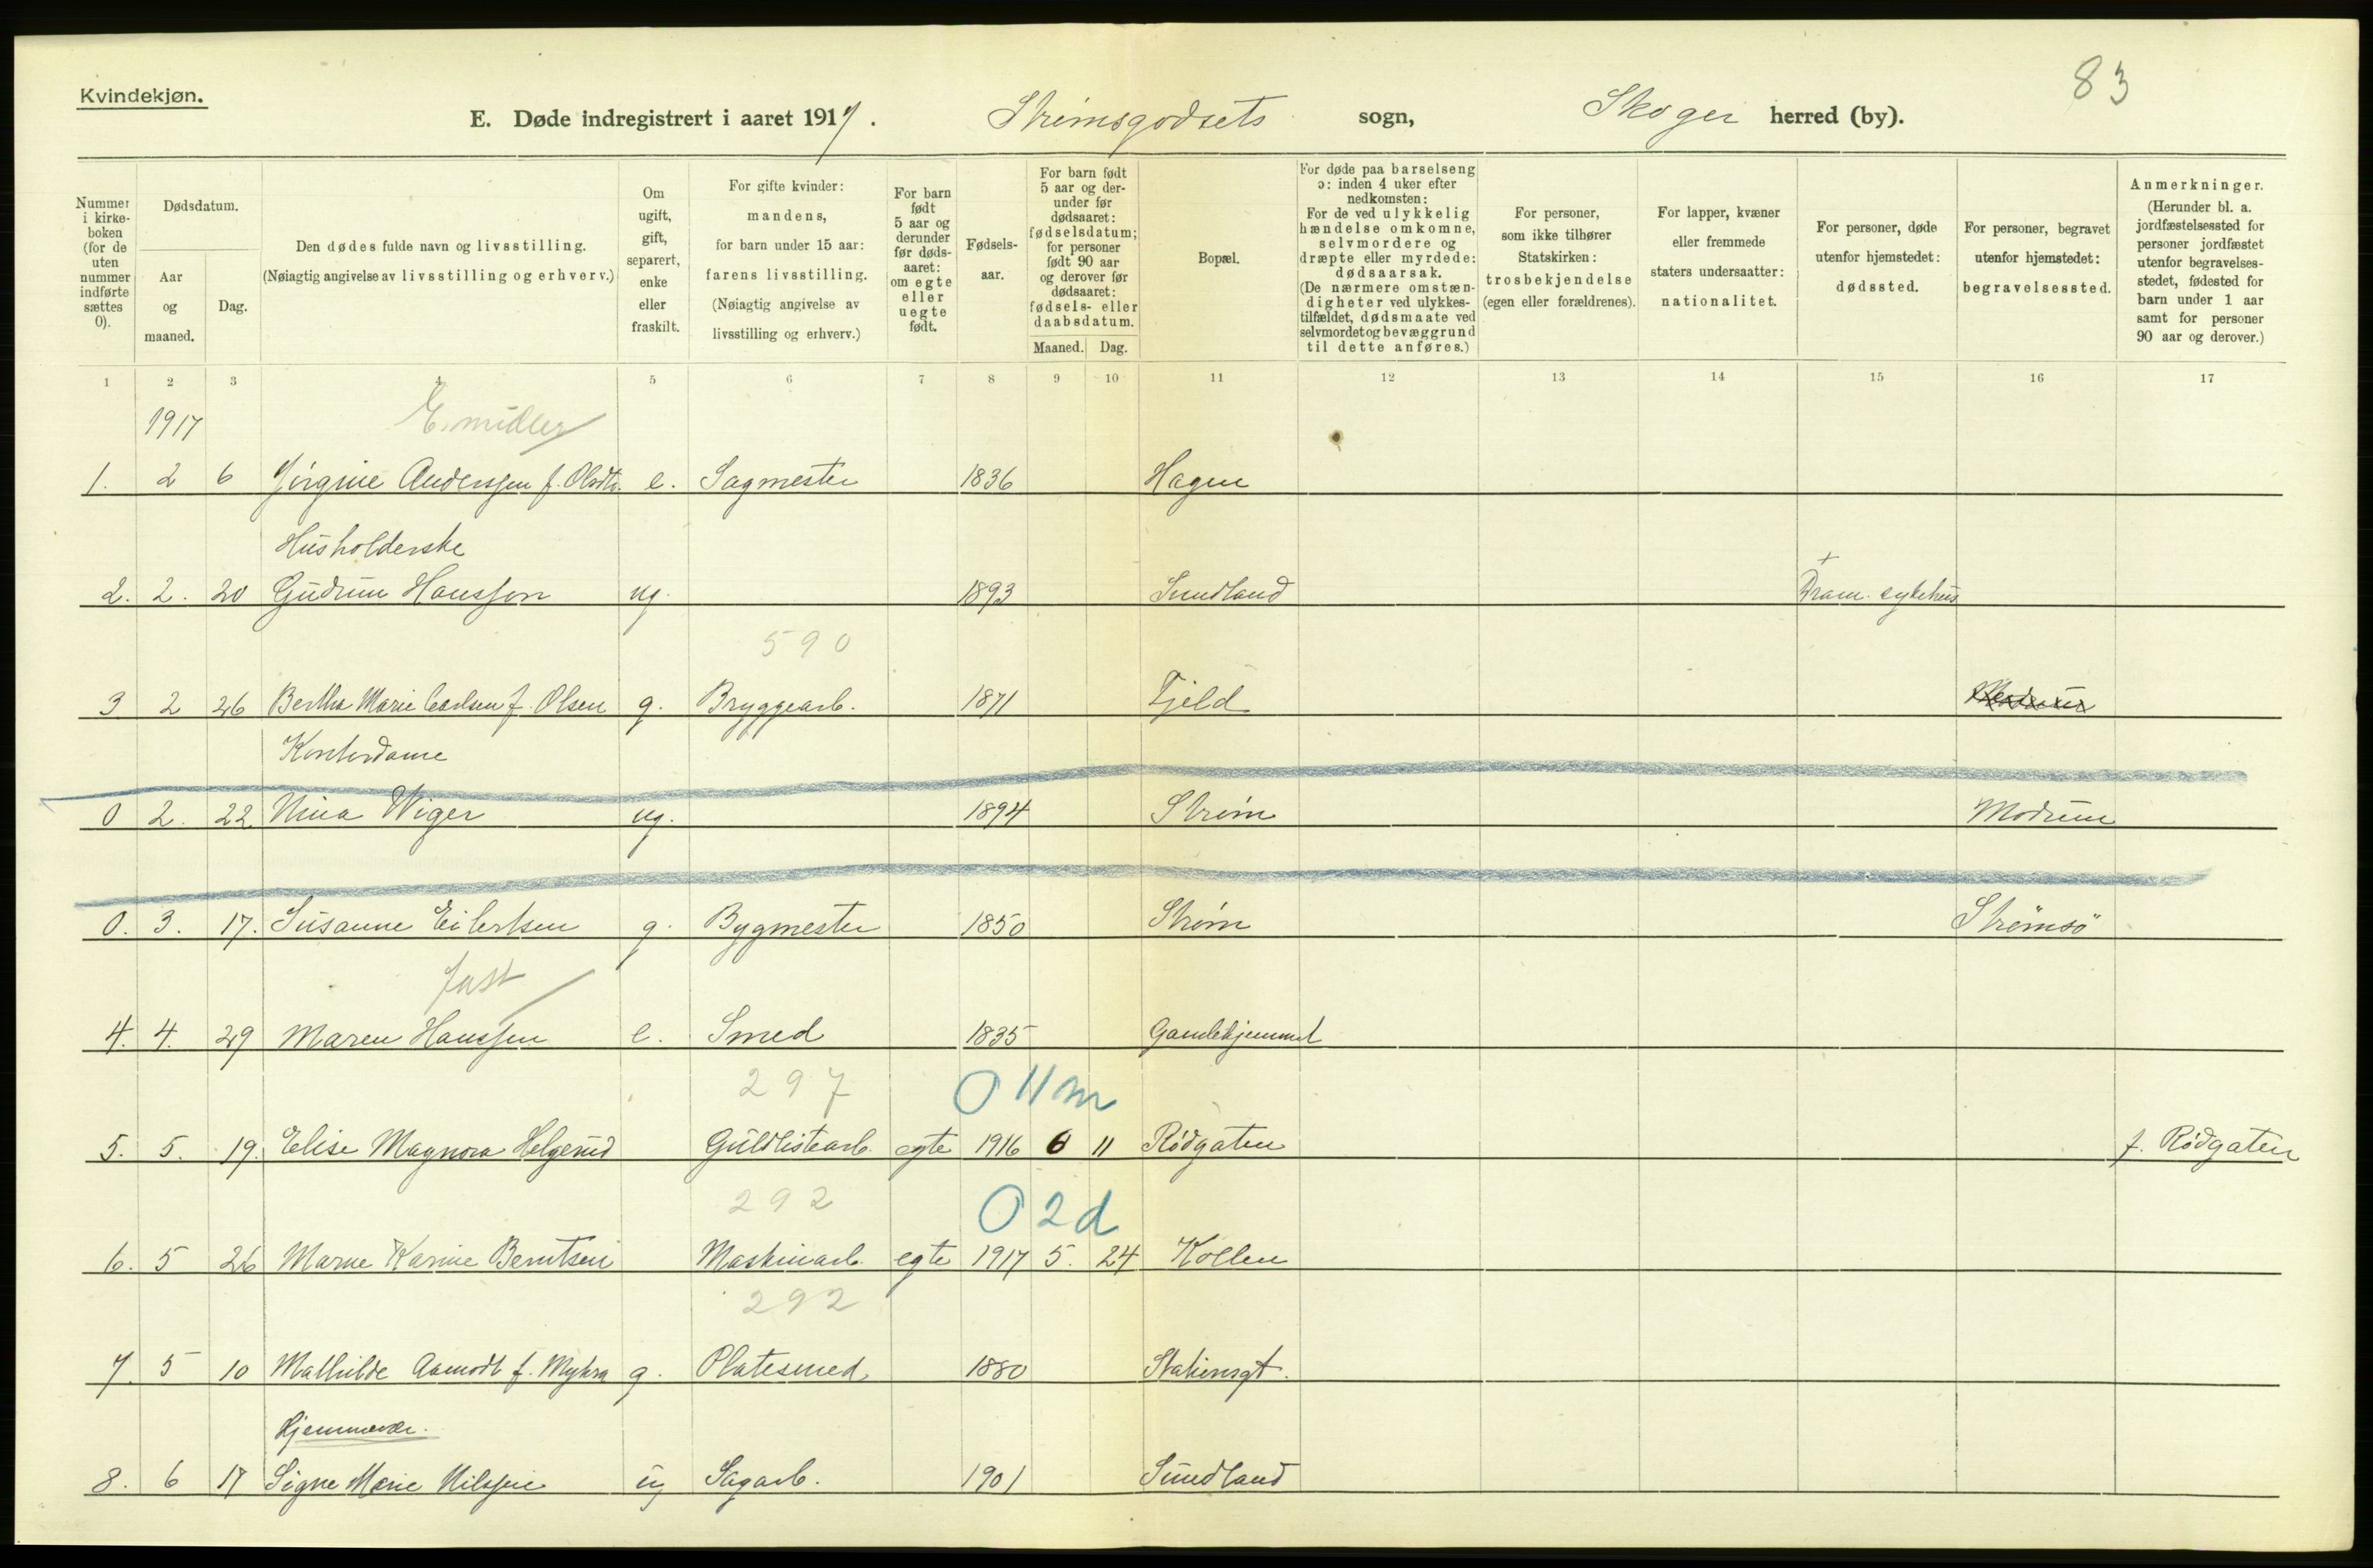 83
Kvindekjøn.
E. Døde indregistrert i aaret 1917. Strømsgodsets sogn, Skoger herred (by).
Nummer i kirkeboken (for de uten nummer indførte sættes 0).
Dødsdatum.
Aar og maaned.
Dag.
Den dødes fulde navn og livsstilling.
(Nøiagtig angivelse av livsstilling og erhverv.)
Om ugift, gift, separert, enke eller fraskilt.
For gifte kvinder: mandens, for barn under 15 aar: farens livsstilling. (Nøiagtig angivelse av livsstilling og erhverv.)
For barn født 5 aar og derunder før dødsaaret: om egte eller uegte født.
Fødselsaar.
For barn født 5 aar og derunder før dødsaaret: fødselsdatum; for personer født 90 aar og derover før dødsaaret: fødsels- eller daabsdatum.
Maaned. Dag.
Bopæl.
For døde paa barselseng ɔ: inden 4 uker efter nedkomsten: For de ved ulykkelig hændelse omkomne, selvmordere og dræpte eller myrdede: dødsaarsak. (De nærmere omstændigheter ved ulykkestilfældet, dødsmaate ved selvmordet og bevæggrund til dette anføres.)
For personer, som ikke tilhører Statskirken: trosbekjendelse (egen eller forældrenes).
For lapper, kvæner eller fremmede staters undersaatter: nationalitet.
For personer, døde utenfor hjemstedet: dødssted.
For personer, begravet utenfor hjemstedet: begravelsessted.
Anmerkninger. (Herunder bl. a. jordfæstelsessted for personer jordfæstet utenfor begravelsesstedet, fødested for barn under 1 aar samt for personer 90 aar og derover.)
1 2 3 4 5 6 7 8 9 10 11 12 13 14 15 16 17
1917 E. midler
1. 2 6 Jørgine Anderssen f. Olsdtr. e. Sagmester 1836 Hagen
Husholderske
2. 2. 20 Gudrun Hanssen ug. 1893 Sundland Dram. sykehus
590
3 2 26 Bertha Marie Carlsen f. Olsen g. Bryggearb. 1871 Fjeld Modum
Kontordame
0 2. 22 Nina Wiger ug. 1894 Strøm Modum
0. 3. 17. Susanne Eilertsen g. Bygmester 1850 Strøm Strømsö
4. 4. 29 Maren Hanssen e. Smed 1835 Gamlehjemmet
297 0 11 m
5. 5. 19. Elise Magnora Helgerud Guldlistearb. egte 1916 6 11 Rødgaten f. Rødgaten
292 0 2 d
6. 5 26 Marne Karine Berntsen Maskinarb. egte 1917 5. 24 Kollen
292
7. 5 10 Mathilde Aamodt f. Myhra g. Platesmed 1880 Stationsgt.
Hjemmevær.
8. 6 17 Signe Marie Nilssen ug Sagarb. 1901 Sundland